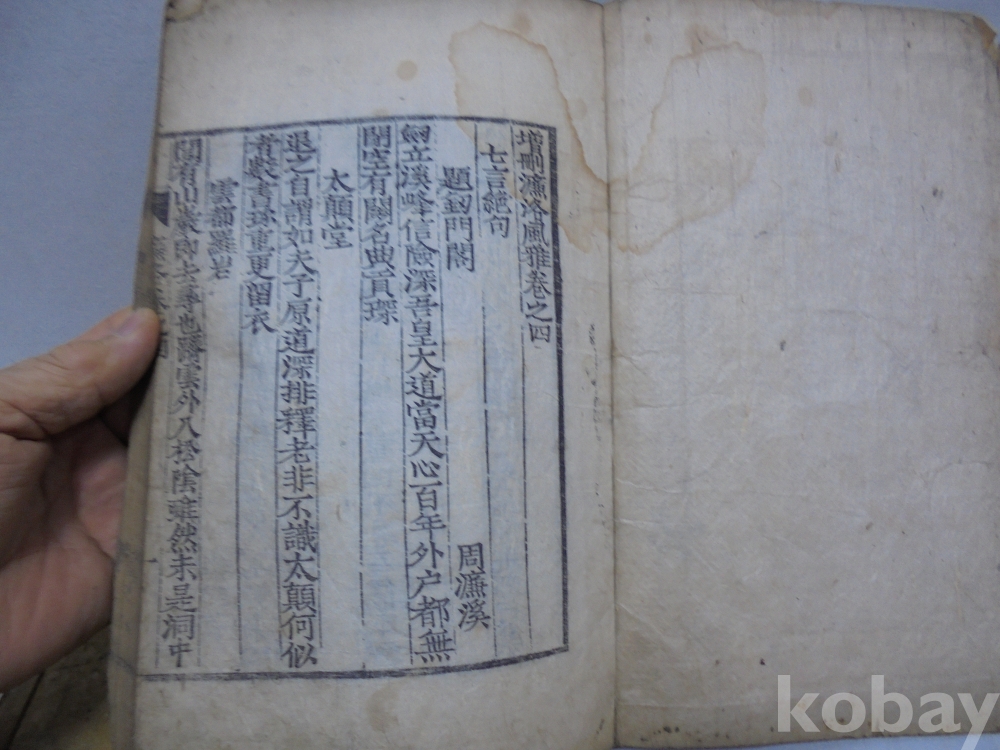 增刪濂洛風雅卷之四
七言絶句
題劒門閣 周濂溪
劒立溪峰信險深吾皇大道當天心百年外户都無
閉空有關名典貢琛
太顛堂
退之自謂如夫子原道深排釋老非不識太顛何似
者數書珍重更留衣
雲 羅岩
聞有山巖即去尋也躋雲外入松陰雖然未是洞中
kobay